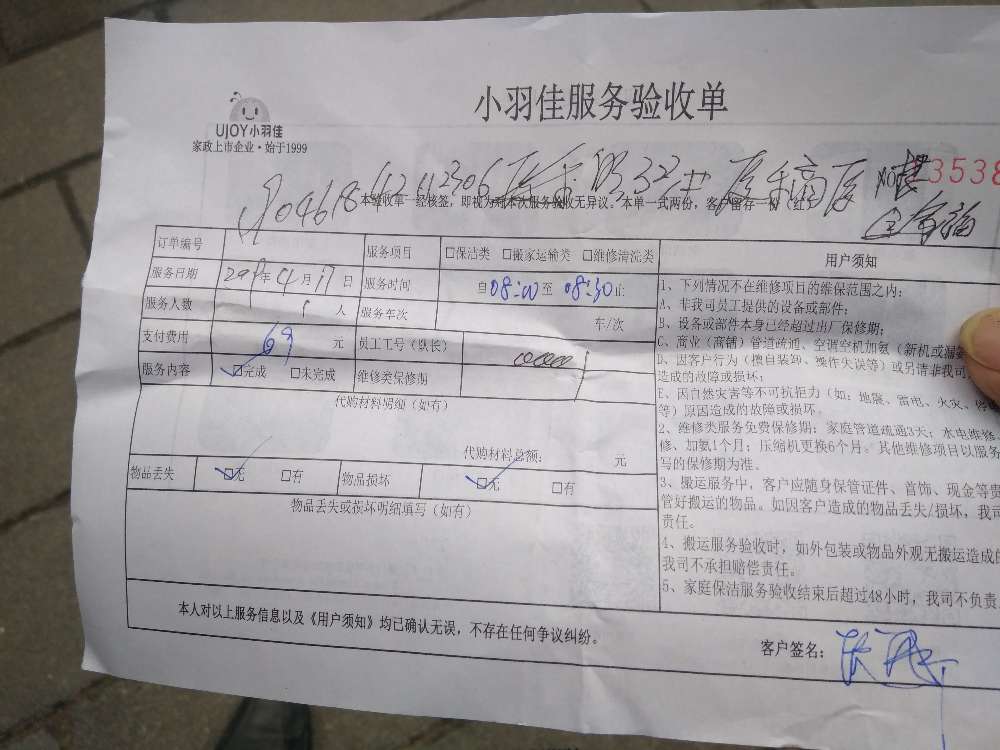 小羽佳服务验收单
UJOY小羽佳
家政上市企业·始于1999
NO 3538
本验收单一经核签，即视为对本次服务验收无异议。本单一式两份，客户留存一份（红）
订单编号 服务项目 □保洁类 □搬家运输类 □维修清洗类
服务日期 年4月17日 服务时间 自08:00至08:30止
服务人数 1人 服务车次 车/次
支付费用 69元 员工工号（队长）
服务内容 □完成 □未完成 维修类保修期
代购材料明细（如有）
代购材料总额： 元
物品丢失 □无 □有 物品损坏 □无 □有
物品丢失或损坏明细填写（如有）
用户须知
1、下列情况不在维修项目的维保范围之内：
A、非我司员工提供的设备或部件；
B、设备或部件本身已经超过出厂保修期；
C、商业（商铺）管道疏通、空调空机加氨（新机或漏
D、因客户行为（擅自装卸、操作失误等）或另请非我司
造成的故障或损坏；
E、因自然灾害等不可抗拒力（如：地震、雷电、火灾、
等）原因造成的故障或损坏。
2、维修类服务免费保修期：家庭管道疏通3天；水电维修
修、加氨1个月；压缩机更换6个月。其他维修项目以服务
写的保修期为准。
3、搬运服务中，客户应随身保管证件、首饰、现金等贵
管好搬运的物品。如因客户造成的物品丢失/损坏，我司
责任。
4、搬运服务验收时，如外包装或物品外观无搬运造成的
我司不承担赔偿责任。
5、家庭保洁服务验收结束后超过48小时，我司不负责
本人对以上服务信息以及《用户须知》均已确认无误，不存在任何争议纠纷。
客户签名：